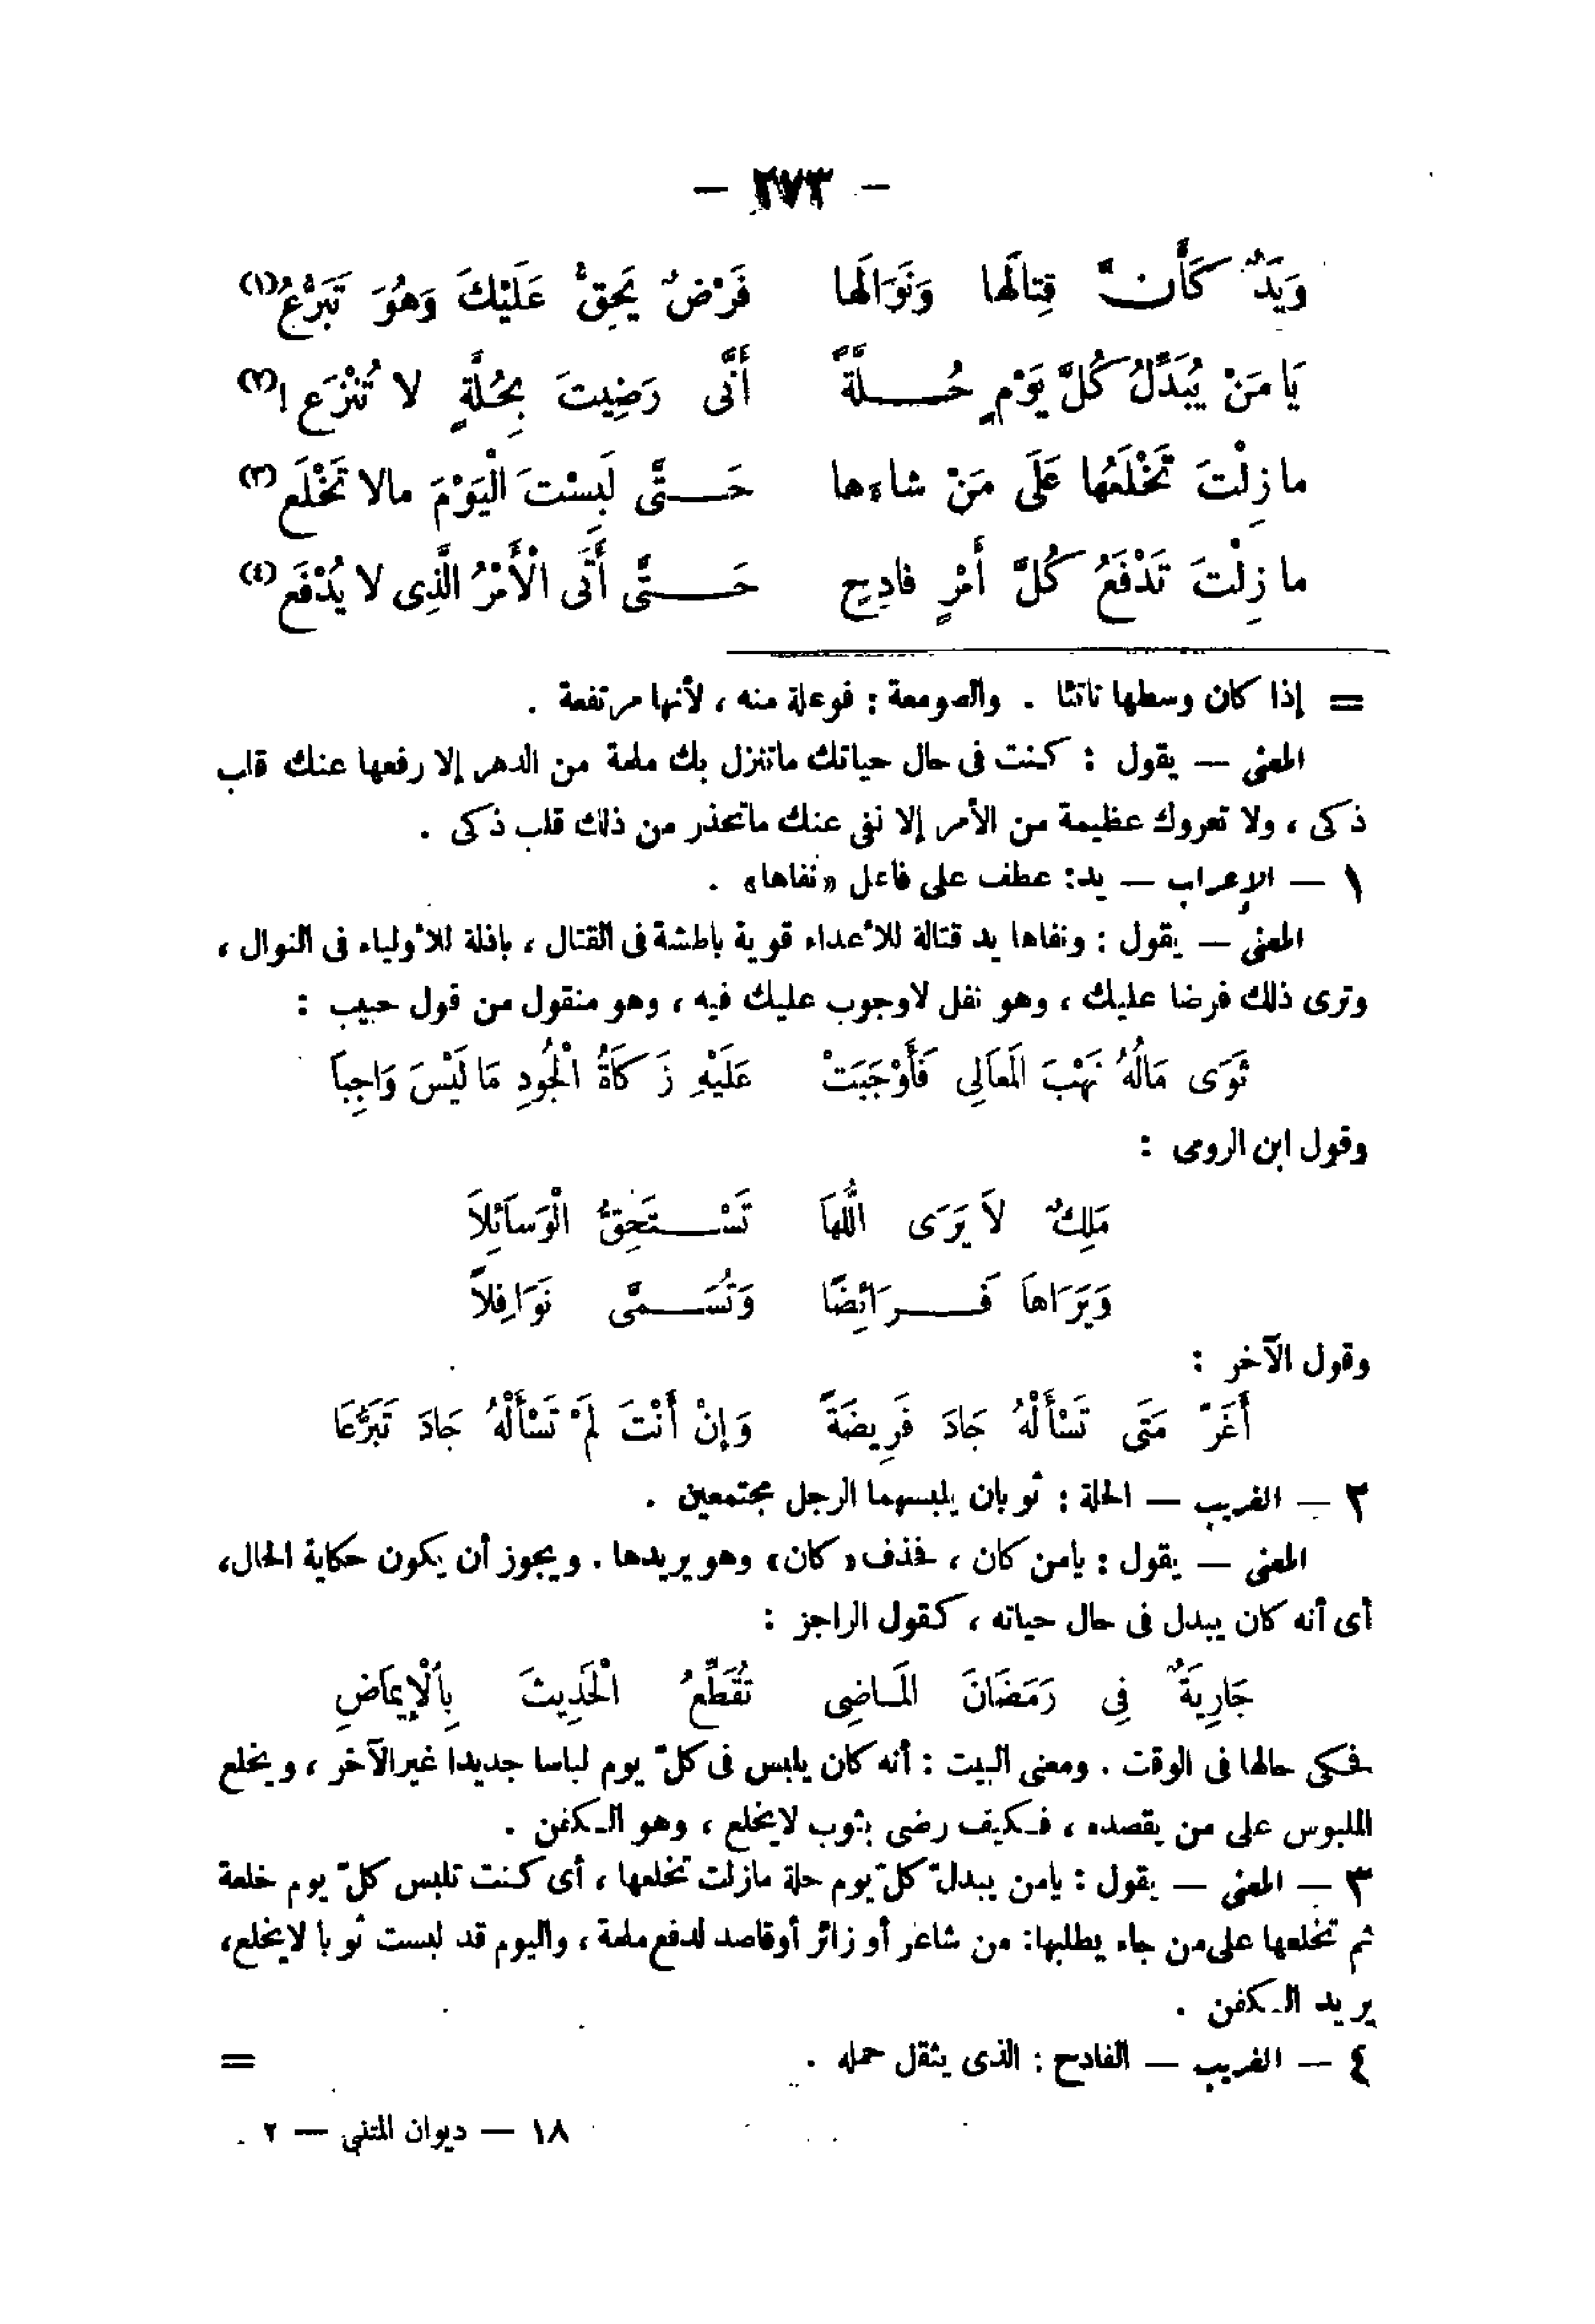 — ٢٧٣ —
وَيَدٌ كَأَنَّ قِتالَها وَنَوَالَها فَرْضٌ يَحِقُّ عَلَيْكَ وَهُوَ تَبَرُّعُ(١)
يَا مَنْ يُبَدِّلُ كُلَّ يَوْمٍ حُلَّةً أَنَّى رَضِيتَ بِحُلَّةٍ لا تُنْزَع !(٢)
ما زِلْتَ تَخْلَعُها عَلَى مَنْ شاءها حَتَّى لَبِسْتَ الْيَوْمَ مالا تَخْلَع(٣)
ما زِلْتَ تَدْفَعُ كُلَّ أَمْرٍ فادِحٍ حَتَّى أَتَى الْأَمْرُ الَّذِى لا يُدْفَع(٤)
= إذا كان وسطها ناتئا . والصومعة : فوعلة منه ، لأنها مرتفعة .
المعنى — يقول : كنت فى حال حياتك ماتنزل بك ملمة من الدهر إلا رفعها عنك قلب
ذكى ، ولا تعروك عظيمة من الأمر إلا نفى عنك ماتحذر من ذلك قلب ذكى .
١ — الإعراب — يد: عطف على فاعل «نفاها» .
المعنى — يقول : ونفاها يد قتالة للأعداء قوية باطشة فى القتال ، باذلة للأولياء فى النوال ،
وترى ذلك فرضا عليك ، وهو نفل لاوجوب عليك فيه ، وهو منقول من قول حبيب :
ثَوَى مَالُهُ نَهْبَ الْمَعَالِى فَأَوْجَبَتْ عَلَيْهِ زَكَاةُ الْجُودِ مَا لَيْسَ وَاجِباَ
وقول ابن الرومى :
مَلِكٌ لاَ يَرَى اللُّهاَ تَسْتَحِقُّ الْوَسَائِلاَ
وَيَرَاهاَ فَرَائِضًا وَتُسَمَّى نَوَافِلاً
وقول الآخر :
أَغَرّ مَتَى تَسْأَلْهُ جَادَ فَرِيضَةً وَإِنْ أَنْتَ لَمْ تَسْأَلْهُ جَادَ تَبَرُّعَا
٢ — الغريب — الحلة : ثوبان يلبسهما الرجل مجتمعين .
المعنى — يقول : يامن كان ، فحذف «كان» وهو يريدها . ويجوز أن يكون حكاية الحال،
أى أنه كان يبدل فى حال حياته ، كقول الراجز :
جَارِيَةٌ فِى رَمَضَانَ الْمَاضِى تُقَطِّعُ الْحَدِيثَ بِالْإِيمَاضِ
فحكى حالها فى الوقت . ومعنى البيت : أنه كان يلبس فى كلّ يوم لباسا جديدا غير الآخر ، ويخلع
الملبوس على من يقصده ، فكيف رضى بثوب لايخلع ، وهو الكفن .
٣ — المعنى — يقول : يامن يبدل كلّ يوم حلة مازلت تخلعها ، أى كنت تلبس كلّ يوم خلعة
ثم تخلعها على من جاء يطلبها: من شاعر أو زائر أوقاصد لدفع ملمة ، واليوم قد لبست ثوبا لايخلع،
يريد الكفن .
٤ — الغريب — الفادح : الذى يثقل حمله . =
١٨ — ديوان المتنبي — ٢